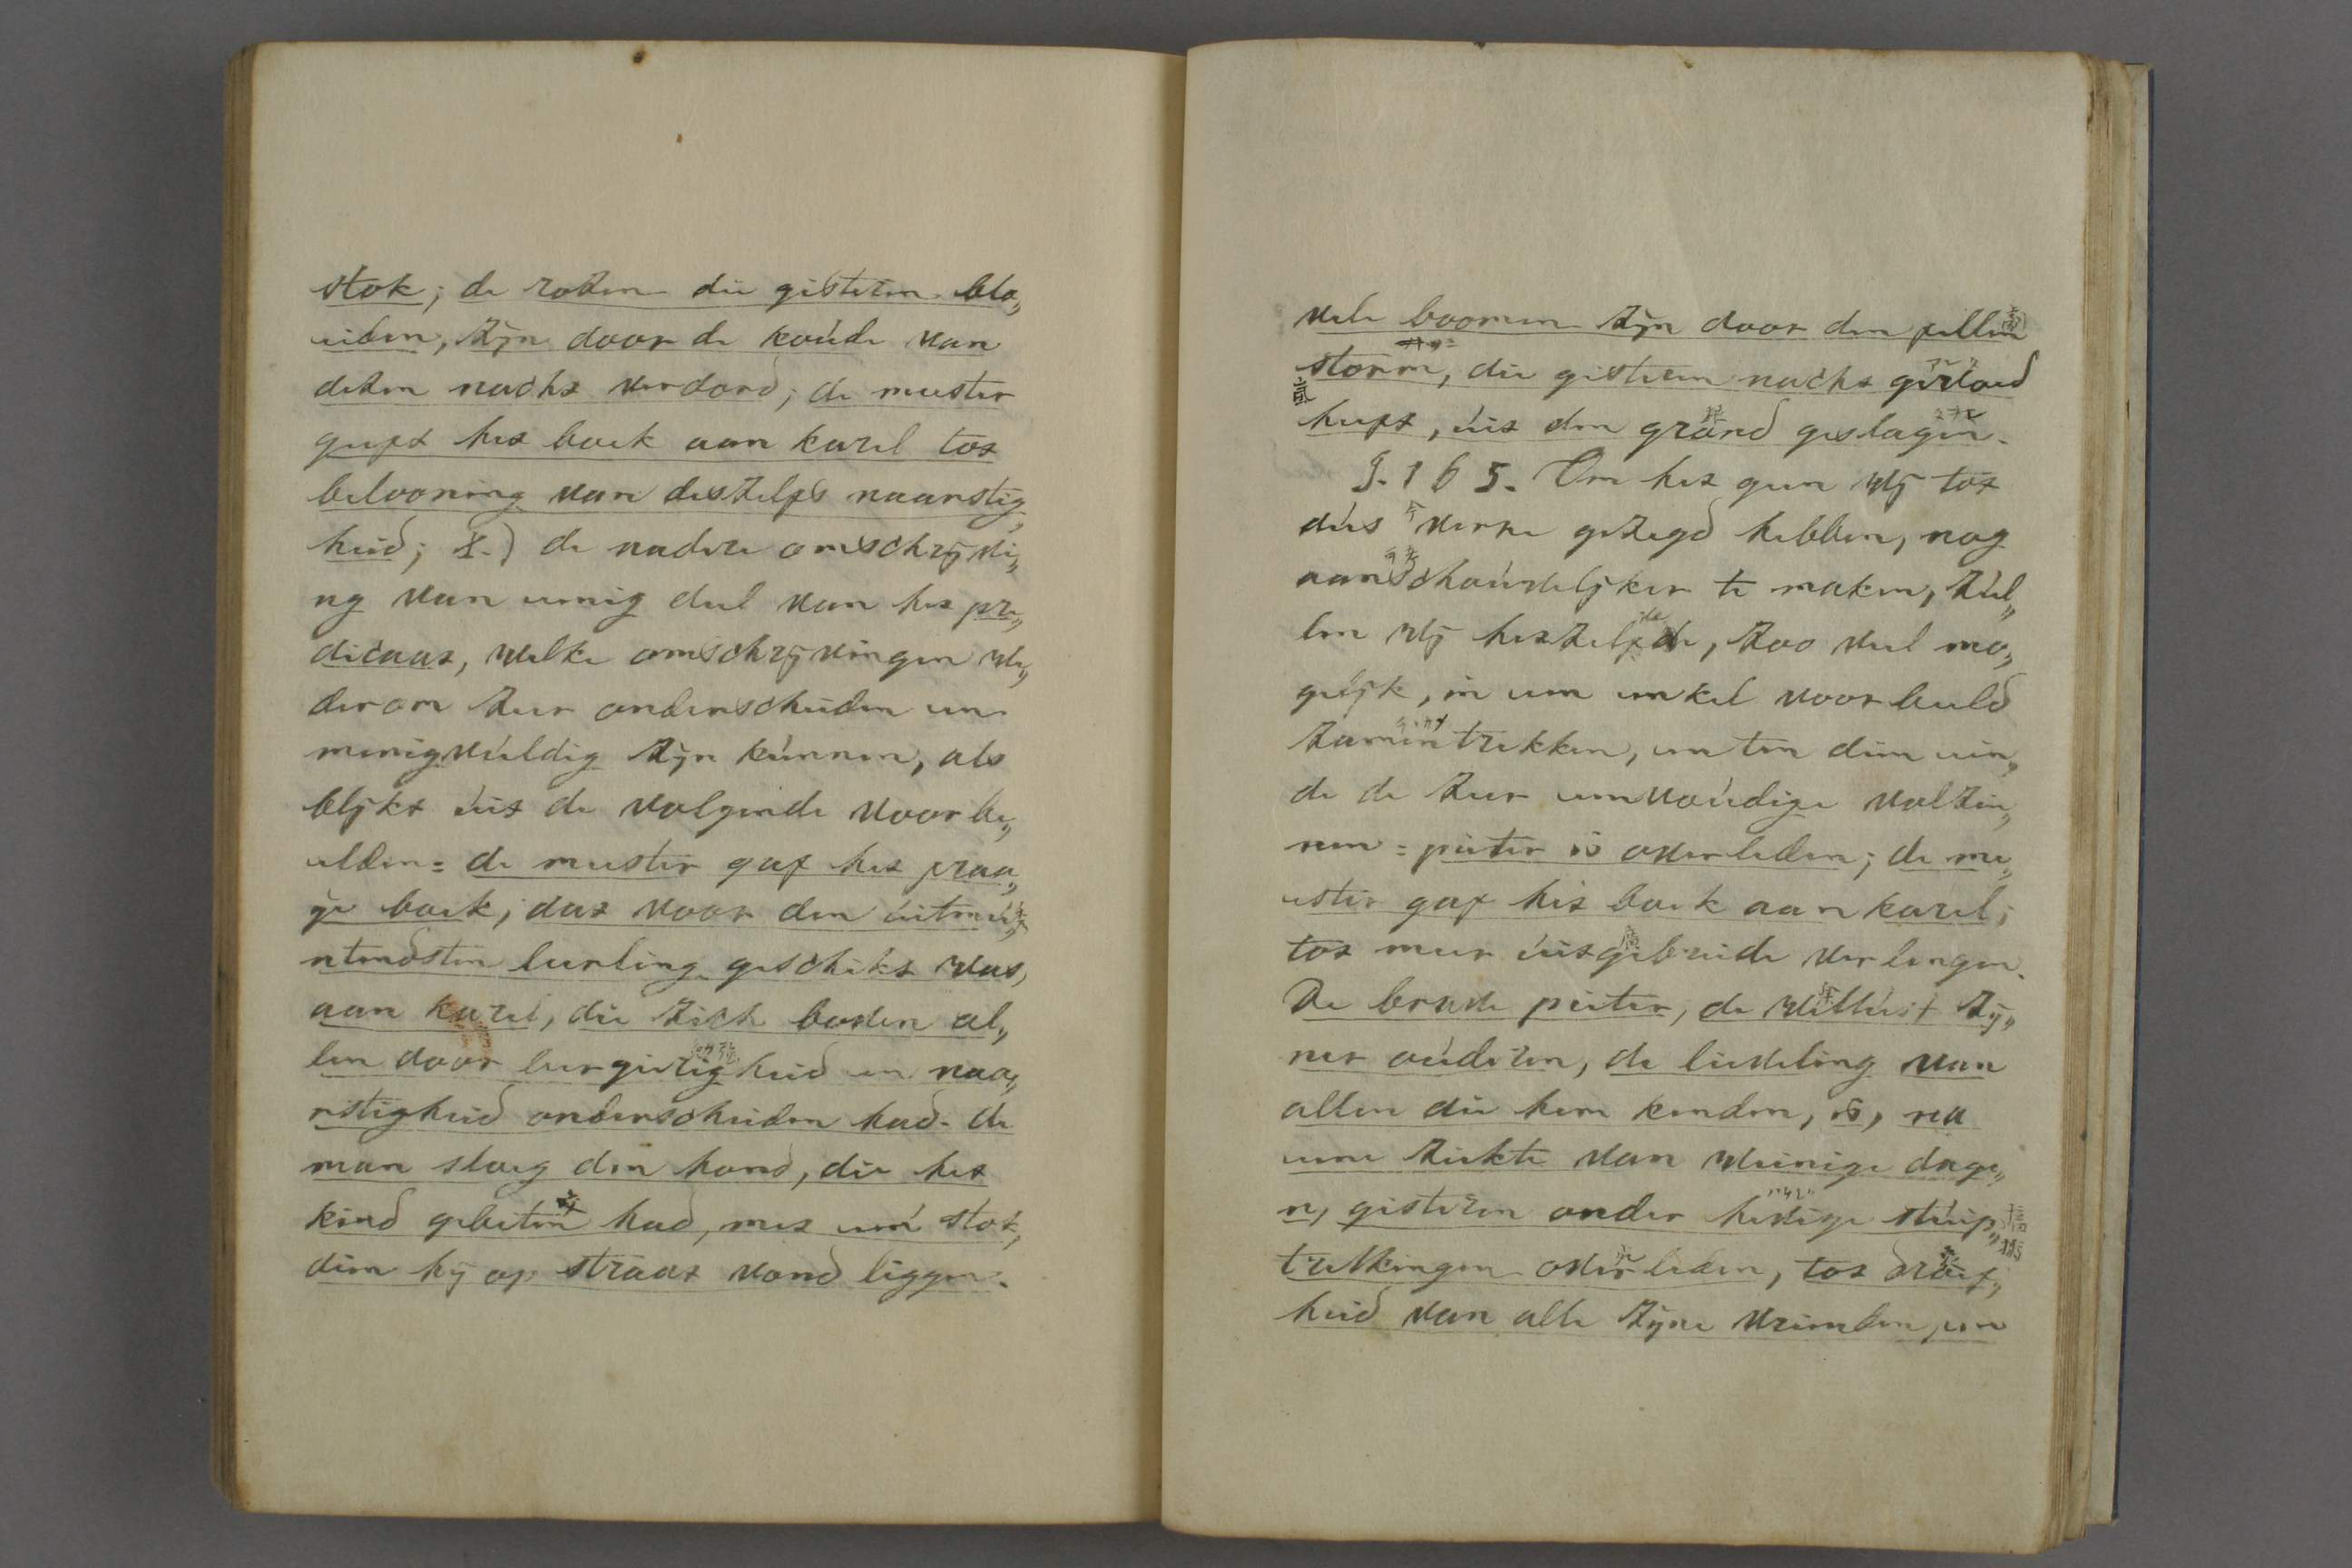 stok; de rozen die gisteren blo„
eiden, zijn door de koude van
dezen nacht verdord; de meester
geeft het boek aan karel tot
belooning van deszelfs naarstig„
heid; X.) de nadere omschrijvi„
ng van eenig deel van het pre„
dicaat, welke omschrijvingen we„
derom zeer onderscheiden en
menigvuldig zijn kunnen, als
blijkt uit de volgende voorbe„
elden = de meester gaf het fraa„
ije boek, dat voor den uitmu„
ntendsten leerling geschikt was,
aan karel, die zich boven al„
len door leergierigheid en naa„
rstigheid onderscheiden had. de
man sloeg den hond, die het
kind gebeten had, met een stok,
dien hij op straat vond liggen.
vele boomen zijn door den fellen
storm, die gisteren nacht gewoed
heeft, uit den grond geslagen.
§. 165. Om het geen wij tot
dus verre gezegd hebben, nog
aanschouwelijker te maken, zul„
len wij hetzelfde, zoo veel mo„
gelijk, in een enkel voorbeeld
zamentrekken, en ten dien ein„
de de zeer eenvoudige volzin„
nen = pieter is overleden; de me„
ester gaf het boek aan karel;
tot meer uitgebreide verlengen.
De brave pieter, de wellust zij„
ner ouderen, de lieveling van
allen die hem kenden, is, na
eene ziekte van weinige dage„
n, gisteren onder hevige stuip„
trekkingen overleden, tot droef„
heid van alle zijne vrienden, en